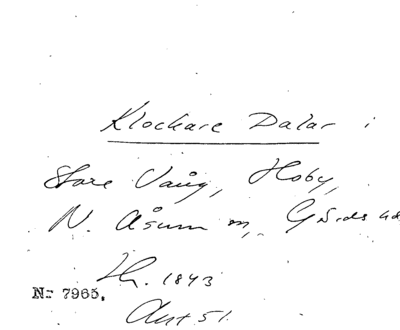 Klockare Dalar i
Store Vång, Hoby,
N. Åsum m, Gärds hd
Th. 1843
N: 7965.
Aut 51.